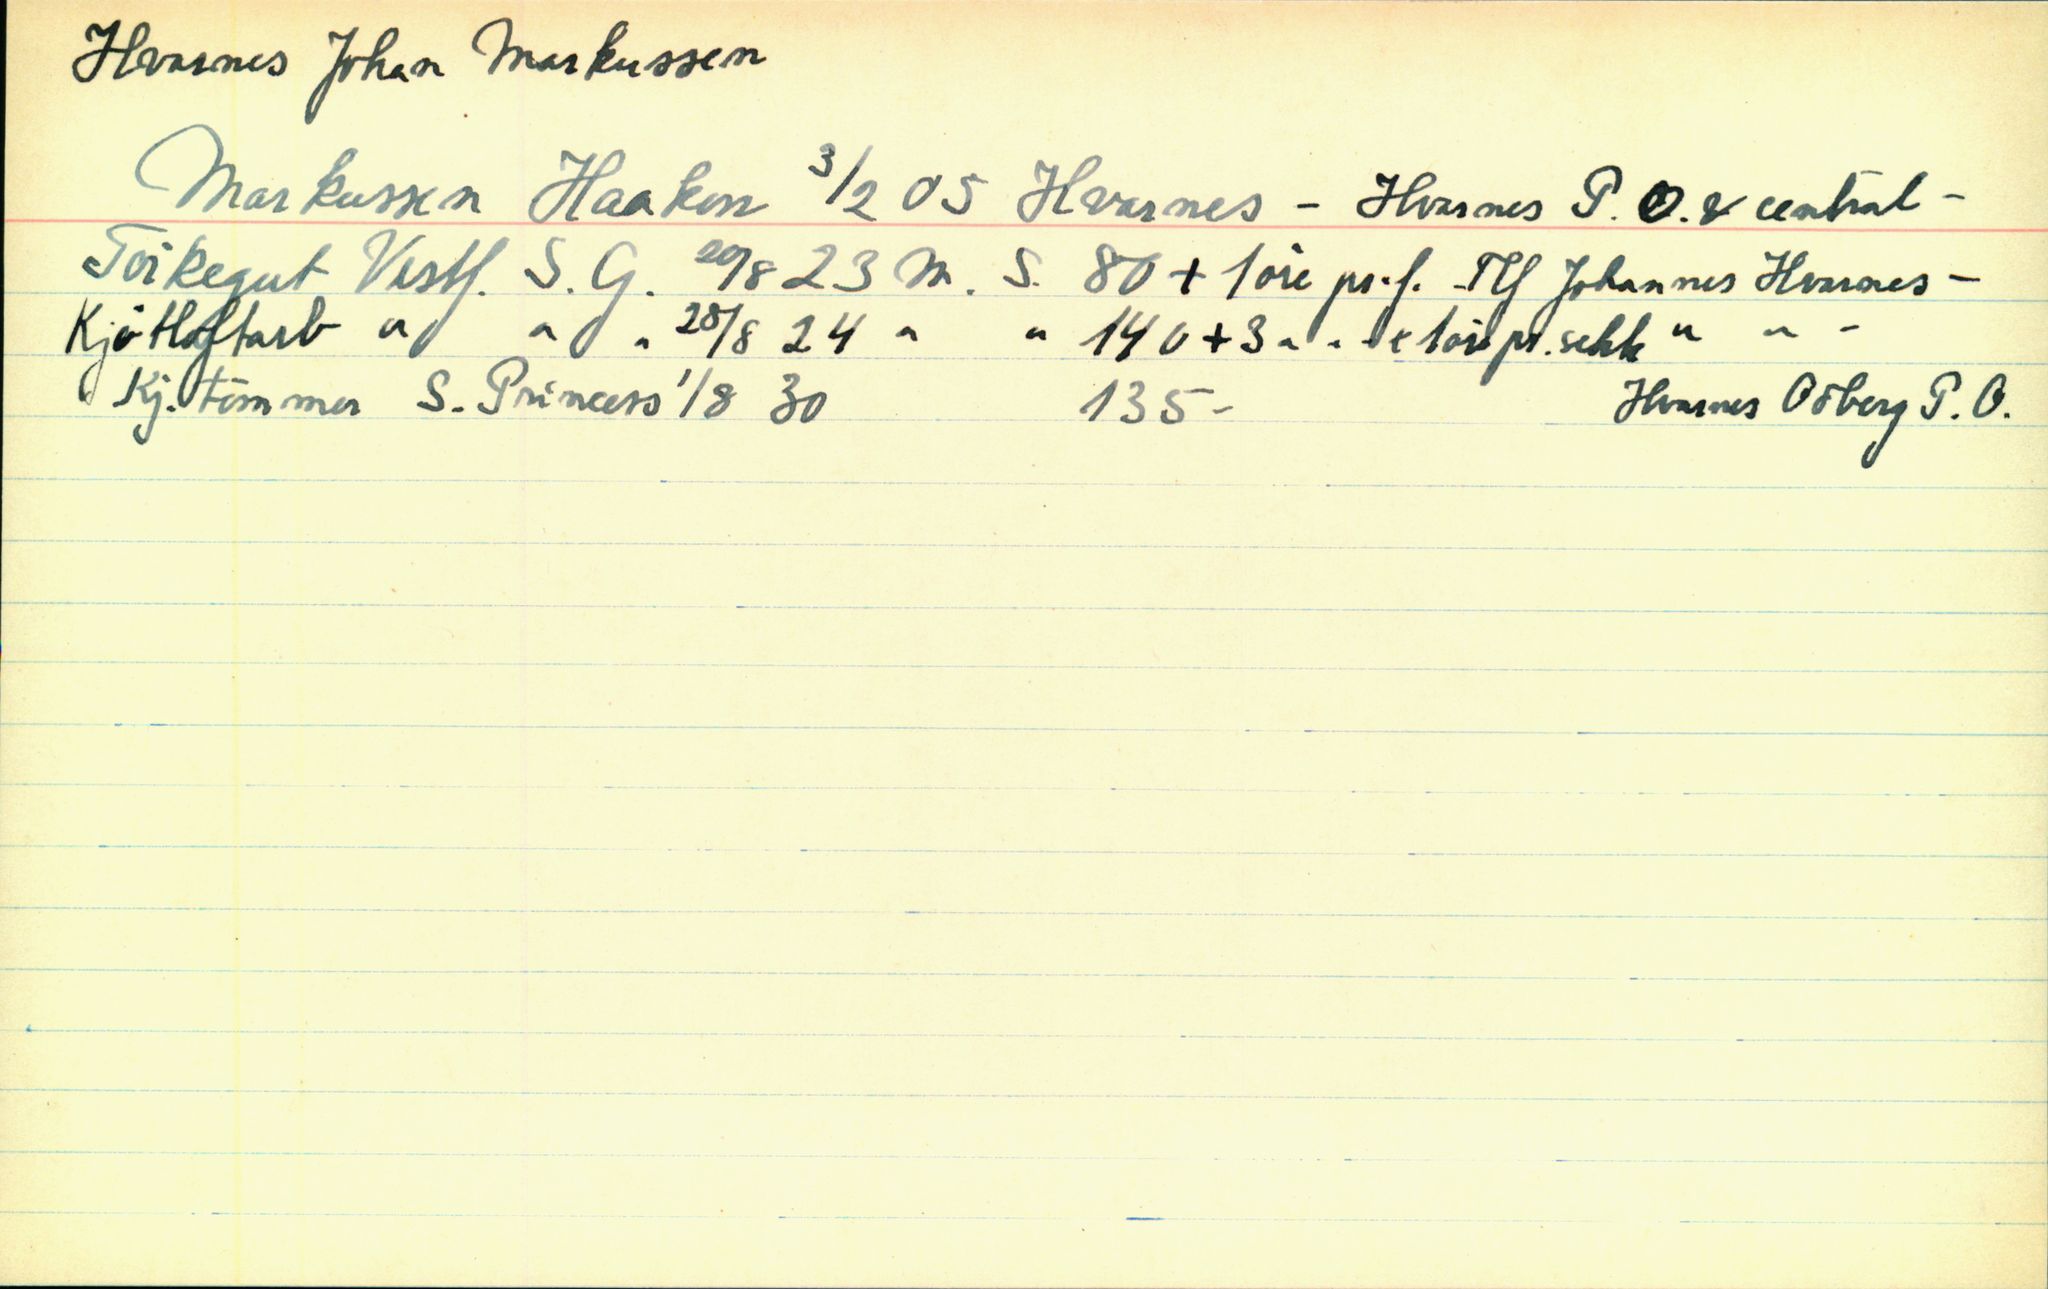 Hvarnes Johan Markussen
Markussen Haakon 3/2 05 Hvarnes - Hvarnes P.O. & central -
Töikegut Vestf. S. G. 20/8 23 M. S. 80 + 1 öre pr. f. Tlf Johannes Hvarnes -
Kjötloftarb " " " 28/8 24 " " 140 + 3 " " + 1 öre pr. sekk " " -
Kj. tömmer S. Princess 1/8 30 135 - Hvarnes Odberg P. O.